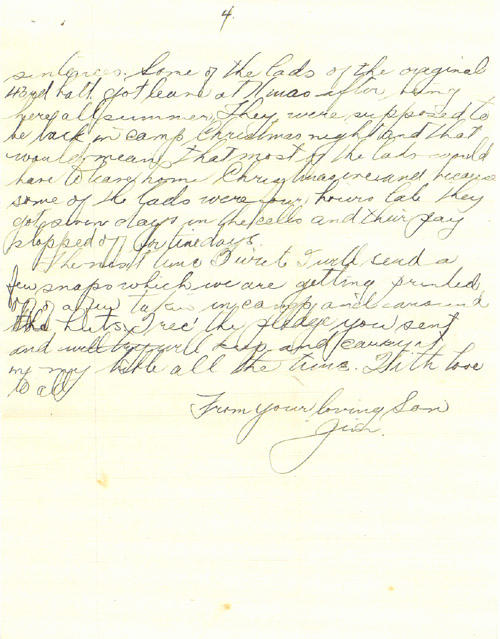 4.
sentences. Some of the lads of the original
43rd batt. got leave at Xmas after being
here all summer. They were supposed to
be back in camp Christmas night and that
would mean that most of the lads would
have to leave home Christmas and because
some of the lads were four hours late they
got seven days in the cells and their pay
stopped off for nine days.
The next time I write I will send a
few snaps which we are getting printed
a few taken in camp and around
the huts. I rec'd the pledge you sent
and will keep and carry it
in my bible all the time. With love
to all
From your loving Son
Jim.